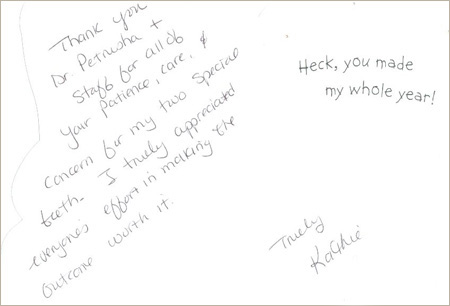 Thank you
Dr. Petrusha +
Staff for all of
your patience, care, &
concern for my two special
teeth. I truly appreciated
everyone's effort in making the
outcome worth it.
Heck, you made
my whole year!
Truly
Kathie